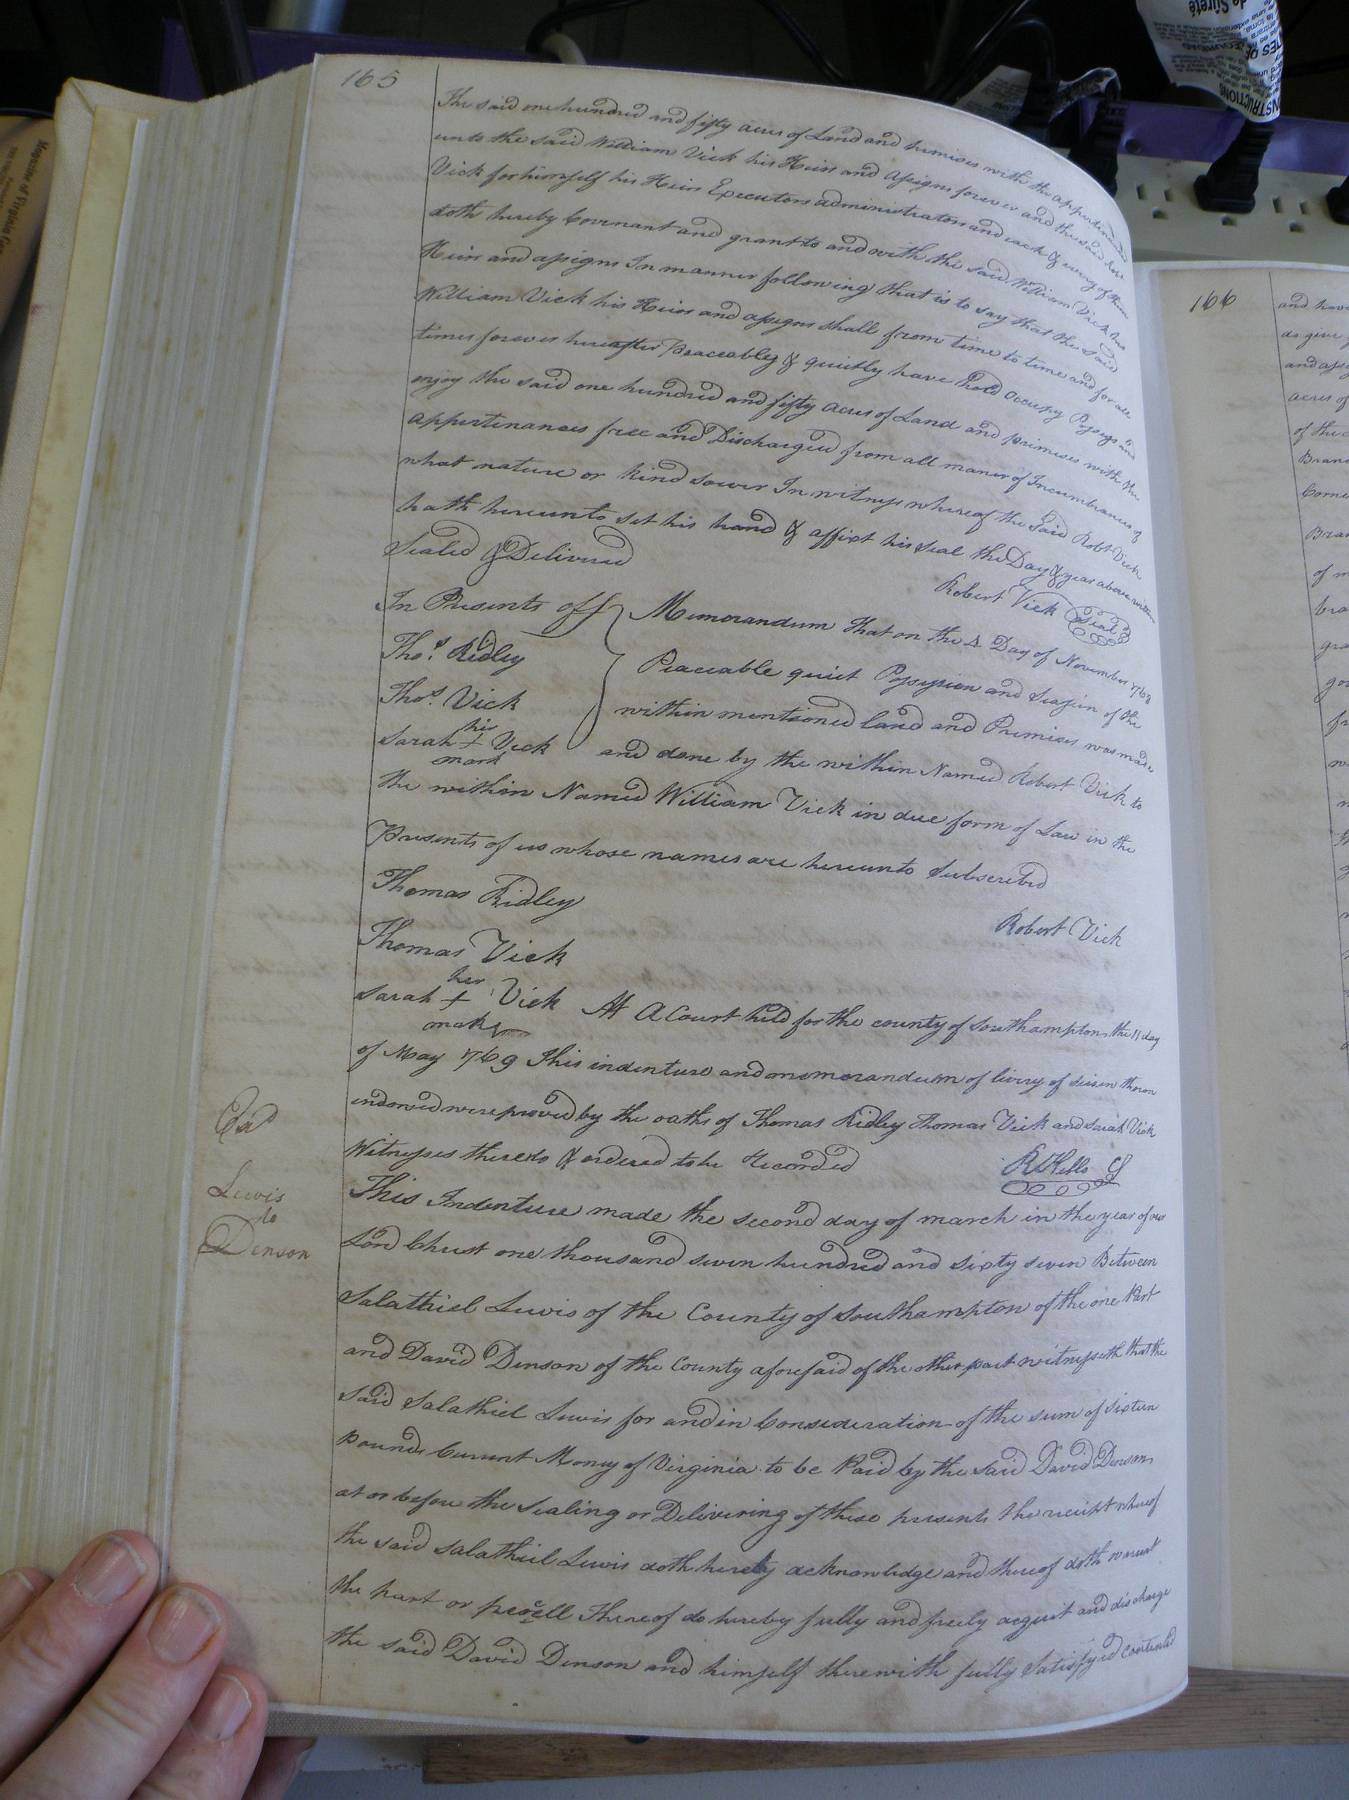 165
The said one hundred and fifty acres of Land and premises with the appurtenances
unto the said William Vick his Heirs and assigns forever and the said Robt
Vick for himself his Heirs Executors administrators and each & every of them
doth hereby Covenant and grant to and with the said William Vick his
Heirs and assigns In manner following that is to say that the said
William Vick his Heirs and assigns shall from time to time and for all
times forever hereafter Peaceably & quietly have hold occupy Possess and
enjoy the said one hundred and fifty acres of Land and primises with the
appurtenances free and Discharged from all maner of Incumbrances of
what nature or kind sover In witness whereof the said Robt Vick
hath hereunto set his hand & affixt his seal the Day & year above written
Sealed & Delivered
Robert Vick Seal
In Presents off Memorandum that on the 4 Day of November 1768
Thos. Ridley Peaceable quiet Possession and Seasien of the
Thos. Vick within mentioned land and Premises was made
his
Sarah + Vick and done by the within Named Robert Vick to
mark
the within Named William Vick in due form of Law in the
Presents of us whose names are hereunto Subscribd
Thomas Ridley
Robert Vick
Thomas Vick
her
Sarah + Vick At A Court held for the county of Southampton the 11 day
mark
of May 1769 This indenture and memorandum of livery of seisen thereon
endorsed were proved by the oaths of Thomas Ridley Thomas Vick and Sarah Vick
Witnesses thereto & ordered to be Recorded
R Kello C
Exd
Lewis
to
Denson
This Indenture made the second day of march in the year of our
Lord Christ one thousand seven hundred and sixty seven Between
Salathiel Lewis of the County of Southampton of the one Part
and David Denson of the County aforesaid of the other part witnesseth that the
said Salathiel Lewis for and in Consideration of the sum of sixteen
Pounds Current Money of Virginia to be Paid by the said David Denson
at or before the Sealing or Delivering of these presents the receipt whereof
the said Salathiel Lewis doth hereby acknowledge and thereof doth
the part or Thereof do hereby fully and freely acquit and discharge
the said David Denson and himself therewith fully Satisfyed contented
166
and have
as give
acres of
of the